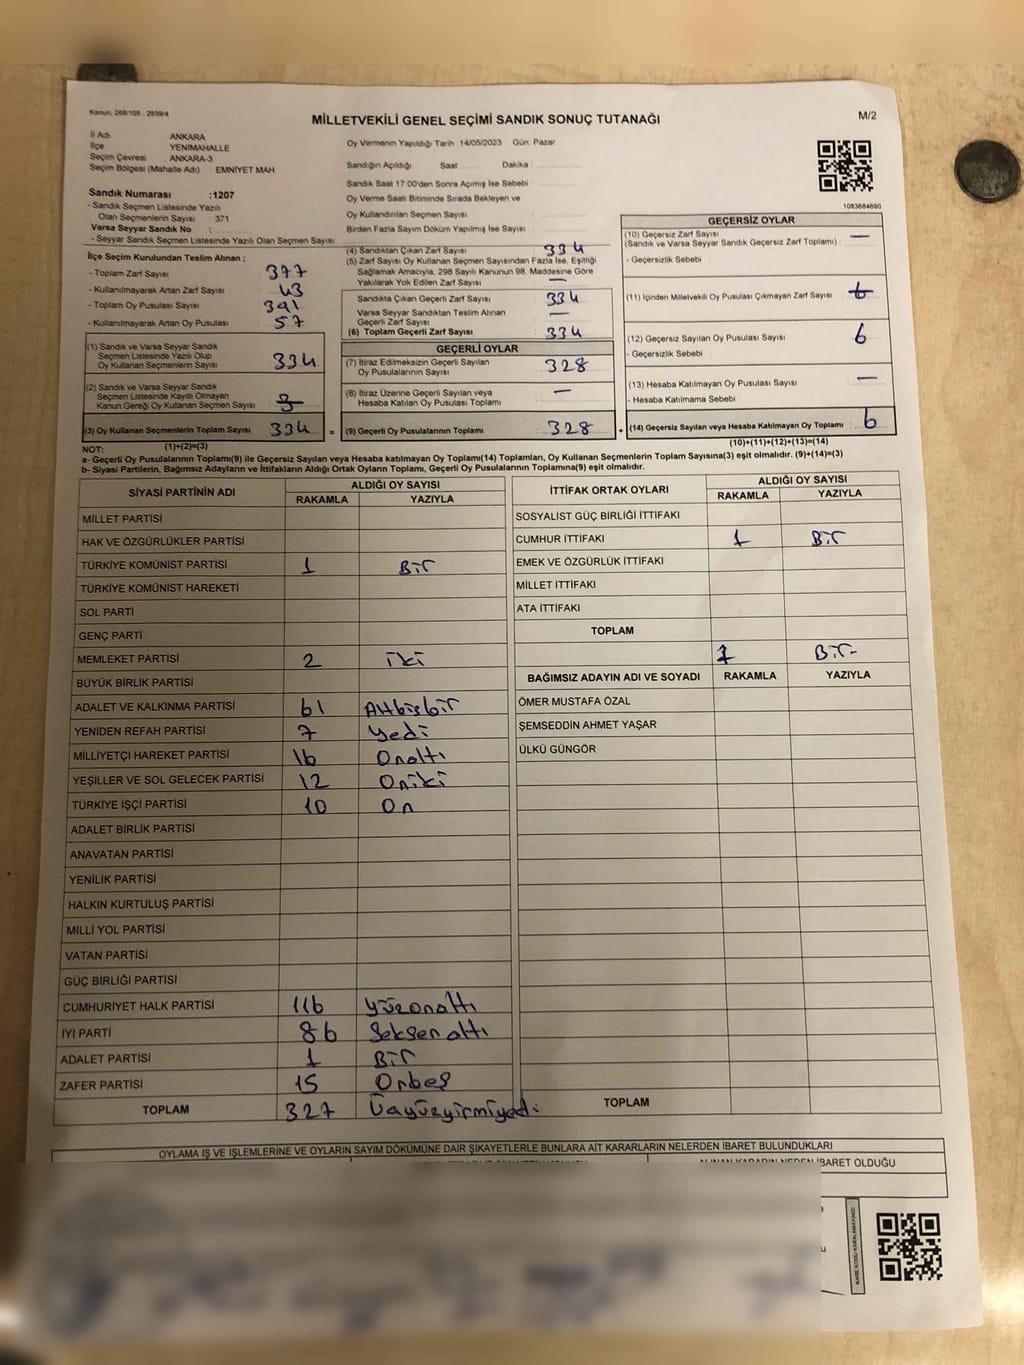 Kanun, 268/105 , 2839/4
M/2
MİLLETVEKİLİ GENEL SEÇİMİ SANDIK SONUÇ TUTANAĞI
İl Adı ANKARA
İlçe YENİMAHALLE
Seçim Çevresi ANKARA-3
Seçim Bölgesi (Mahalle Adı) EMNİYET MAH.
Sandık Numarası :1207
- Sandık Seçmen Listesinde Yazılı
Olan Seçmenlerin Sayısı 371
Varsa Seyyar Sandık No :
- Seyyar Sandık Seçmen Listesinde Yazılı Olan Seçmen Sayısı
Oy Vermenin Yapıldığı Tarih :14/05/2023 Gün: Pazar
Sandığın Açıldığı Saat Dakika
Sandık Saat 17:00'den Sonra Açılmış İse Sebebi
Oy Verme Saati Bitiminde Sırada Bekleyen ve
Oy Kullandırılan Seçmen Sayısı
Birden Fazla Sayım Döküm Yapılmış İse Sayısı
1083684690
İlçe Seçim Kurulundan Teslim Alınan :
- Toplam Zarf Sayısı 377
- Kullanılmayarak Artan Zarf Sayısı 43
- Toplam Oy Pusulası Sayısı 391
- Kullanılmayarak Artan Oy Pusulası 57
(1) Sandık ve Varsa Seyyar Sandık
Seçmen Listesinde Yazılı Olup
Oy Kullanan Seçmenlerin Sayısı 334
(2) Sandık ve Varsa Seyyar Sandık
Seçmen Listesinde Kayıtlı Olmayan
Kanun Gereği Oy Kullanan Seçmen Sayısı
(3) Oy Kullanan Seçmenlerin Toplam Sayısı 334 =
(1)+(2)=(3)
(4) Sandıktan Çıkan Zarf Sayısı 334
(5) Zarf Sayısı Oy Kullanan Seçmen Sayısından Fazla İse, Eşitliği
Sağlamak Amacıyla, 298 Sayılı Kanunun 98. Maddesine Göre
Yakılarak Yok Edilen Zarf Sayısı —
Sandıkta Çıkan Geçerli Zarf Sayısı 334
Varsa Seyyar Sandıktan Teslim Alınan
Geçerli Zarf Sayısı —
(6) Toplam Geçerli Zarf Sayısı 334
GEÇERLİ OYLAR
(7) İtiraz Edilmeksizin Geçerli Sayılan
Oy Pusulalarının Sayısı 328
(8) İtiraz Üzerine Geçerli Sayılan veya
Hesaba Katılan Oy Pusulası Toplamı —
(9) Geçerli Oy Pusulalarının Toplamı 328 +
GEÇERSİZ OYLAR
(10) Geçersiz Zarf Sayısı —
(Sandık ve Varsa Seyyar Sandık Geçersiz Zarf Toplamı)
- Geçersizlik Sebebi
(11) İçinden Milletvekili Oy Pusulası Çıkmayan Zarf Sayısı
(12) Geçersiz Sayılan Oy Pusulası Sayısı 6
- Geçersizlik Sebebi
(13) Hesaba Katılmayan Oy Pusulası Sayısı —
- Hesaba Katılmama Sebebi
(14) Geçersiz Sayılan veya Hesaba Katılmayan Oy Toplamı 6
(10)+(11)+(12)+(13)=(14)
NOT:
a- Geçerli Oy Pusulalarının Toplamı(9) ile Geçersiz Sayılan veya Hesaba Katılmayan Oy Toplamı(14) Toplamları, Oy Kullanan Seçmenlerin Toplam Sayısına(3) eşit olmalıdır. (9)+(14)=(3)
b- Siyasi Partilerin, Bağımsız Adayların ve İttifakların Aldığı Ortak Oyların Toplamı, Geçerli Oy Pusulalarının Toplamına(9) eşit olmalıdır.
SİYASİ PARTİNİN ADI ALDIĞI OY SAYISI
RAKAMLA YAZIYLA
MİLLET PARTİSİ
HAK VE ÖZGÜRLÜKLER PARTİSİ
TÜRKİYE KOMÜNİST PARTİSİ 1 Bir
TÜRKİYE KOMÜNİST HAREKETİ
SOL PARTİ
GENÇ PARTİ
MEMLEKET PARTİSİ 2 iki
BÜYÜK BİRLİK PARTİSİ
ADALET VE KALKINMA PARTİSİ 61 Altbişbir
YENİDEN REFAH PARTİSİ 7 Yedi
MİLLİYETÇİ HAREKET PARTİSİ 16 Onaltı
YEŞİLLER VE SOL GELECEK PARTİSİ 12 Oniki
TÜRKİYE İŞÇİ PARTİSİ 10 On
ADALET BİRLİK PARTİSİ
ANAVATAN PARTİSİ
YENİLİK PARTİSİ
HALKIN KURTULUŞ PARTİSİ
MİLLİ YOL PARTİSİ
VATAN PARTİSİ
GÜÇ BİRLİĞİ PARTİSİ
CUMHURİYET HALK PARTİSİ 116 Yüzonaltı
İYİ PARTİ 86 Seksen altı
ADALET PARTİSİ 1 Bir
ZAFER PARTİSİ 15 Onbeş
TOPLAM 327 Üçyüzyirmiyedi
İTTİFAK ORTAK OYLARI ALDIĞI OY SAYISI
RAKAMLA YAZIYLA
SOSYALİST GÜÇ BİRLİĞİ İTTİFAKI
CUMHUR İTTİFAKI 1 Bir
EMEK VE ÖZGÜRLÜK İTTİFAKI
MİLLET İTTİFAKI
ATA İTTİFAKI
TOPLAM 1 Bir
BAĞIMSIZ ADAYIN ADI VE SOYADI RAKAMLA YAZIYLA
ÖMER MUSTAFA ÖZAL
ŞEMSEDDİN AHMET YAŞAR
ÜLKÜ GÜNGÖR
TOPLAM
OYLAMA İŞ VE İŞLEMLERİNE VE OYLARIN SAYIM DÖKÜMÜNE DAİR ŞİKAYETLERLE BUNLARA AİT KARARLARIN NELERDEN İBARET BULUNDUKLARI
ALINAN KARARIN NEDEN İBARET OLDUĞU
KARE KODU KARALAMAYINIZ!